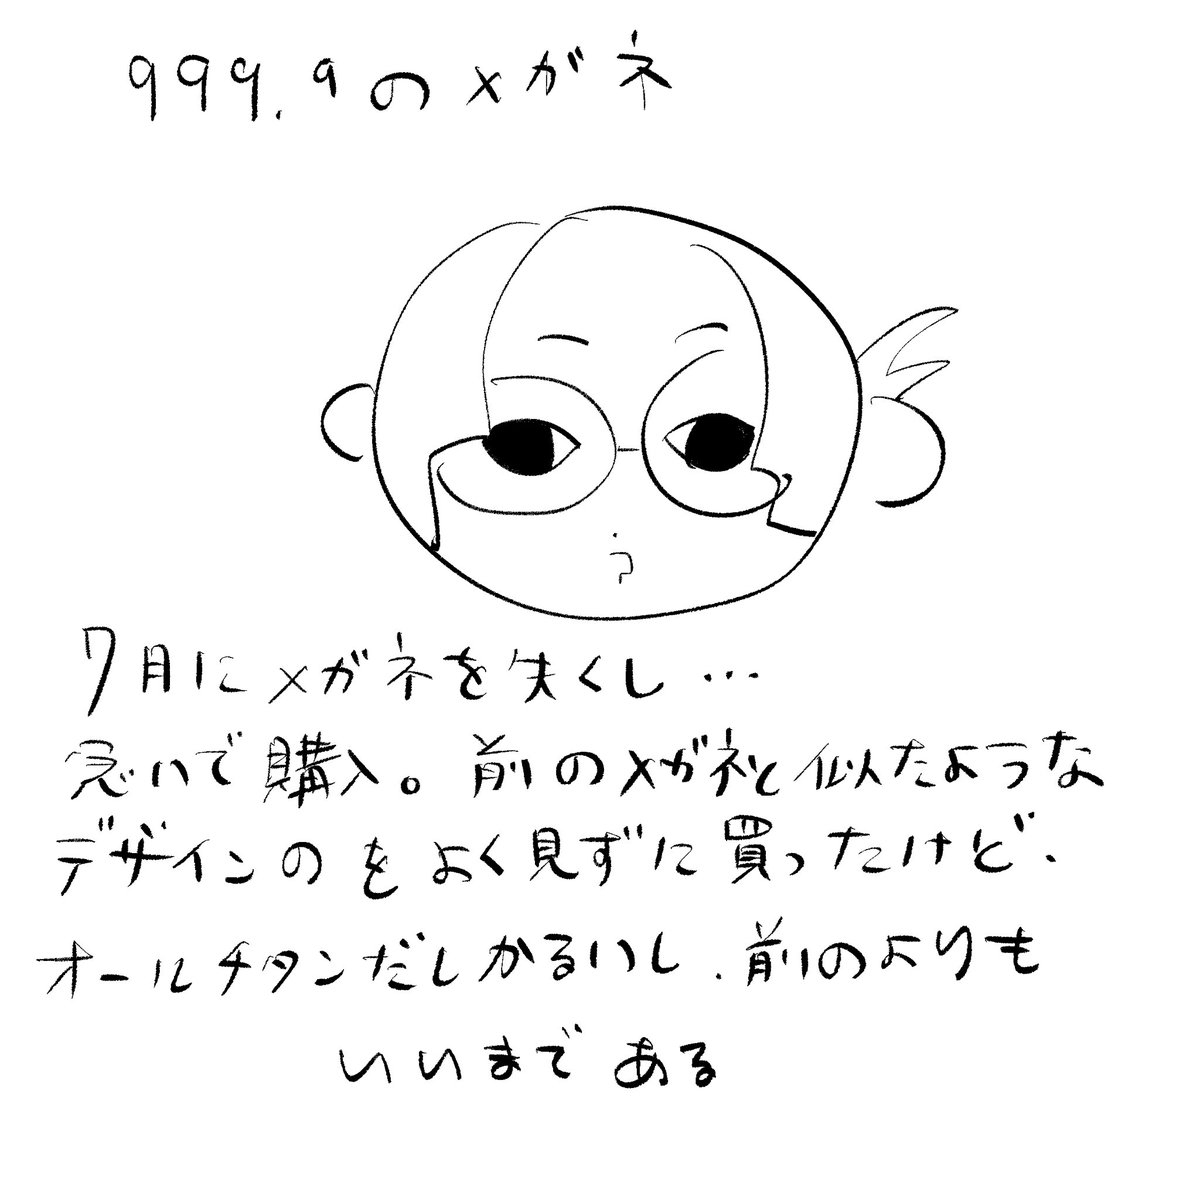 999.9のメガネ
7月にメガネを失くし…
急いで購入。前のメガネと似たような
デザインのをよく見ずに買ったけど、
オールチタンだしかるいし、前のよりも
いいまである